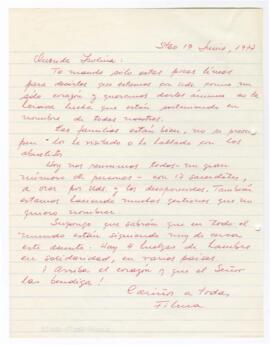 Stgo 19 Junio, 1977
Querida
Te mando sólo estas pocas líneas
para decirles que estamos con Uds como un
solo corazón y queremos darles ánimos en la
heroica lucha que están sosteniendo en
nombre de todos nosotros.
Las familias están bien, no se preocu
pen - los he visitado o he hablado con los
abuelitos.
Hoy nos reunimos todos - un gran
número de personas - con 17 sacerdotes,
a orar por Uds. y los desaparecidos. También
estamos haciendo muchas gestiones que no
quiero nombrar.
Supongo que sabrán que en todo el
mundo están siguiendo muy de cerca
este asunto: Hay 4 huelgas de hambre
en solidaridad, en varios países.
¡Arriba el corazón y que el Señor
las bendiga!
Cariños a todas,